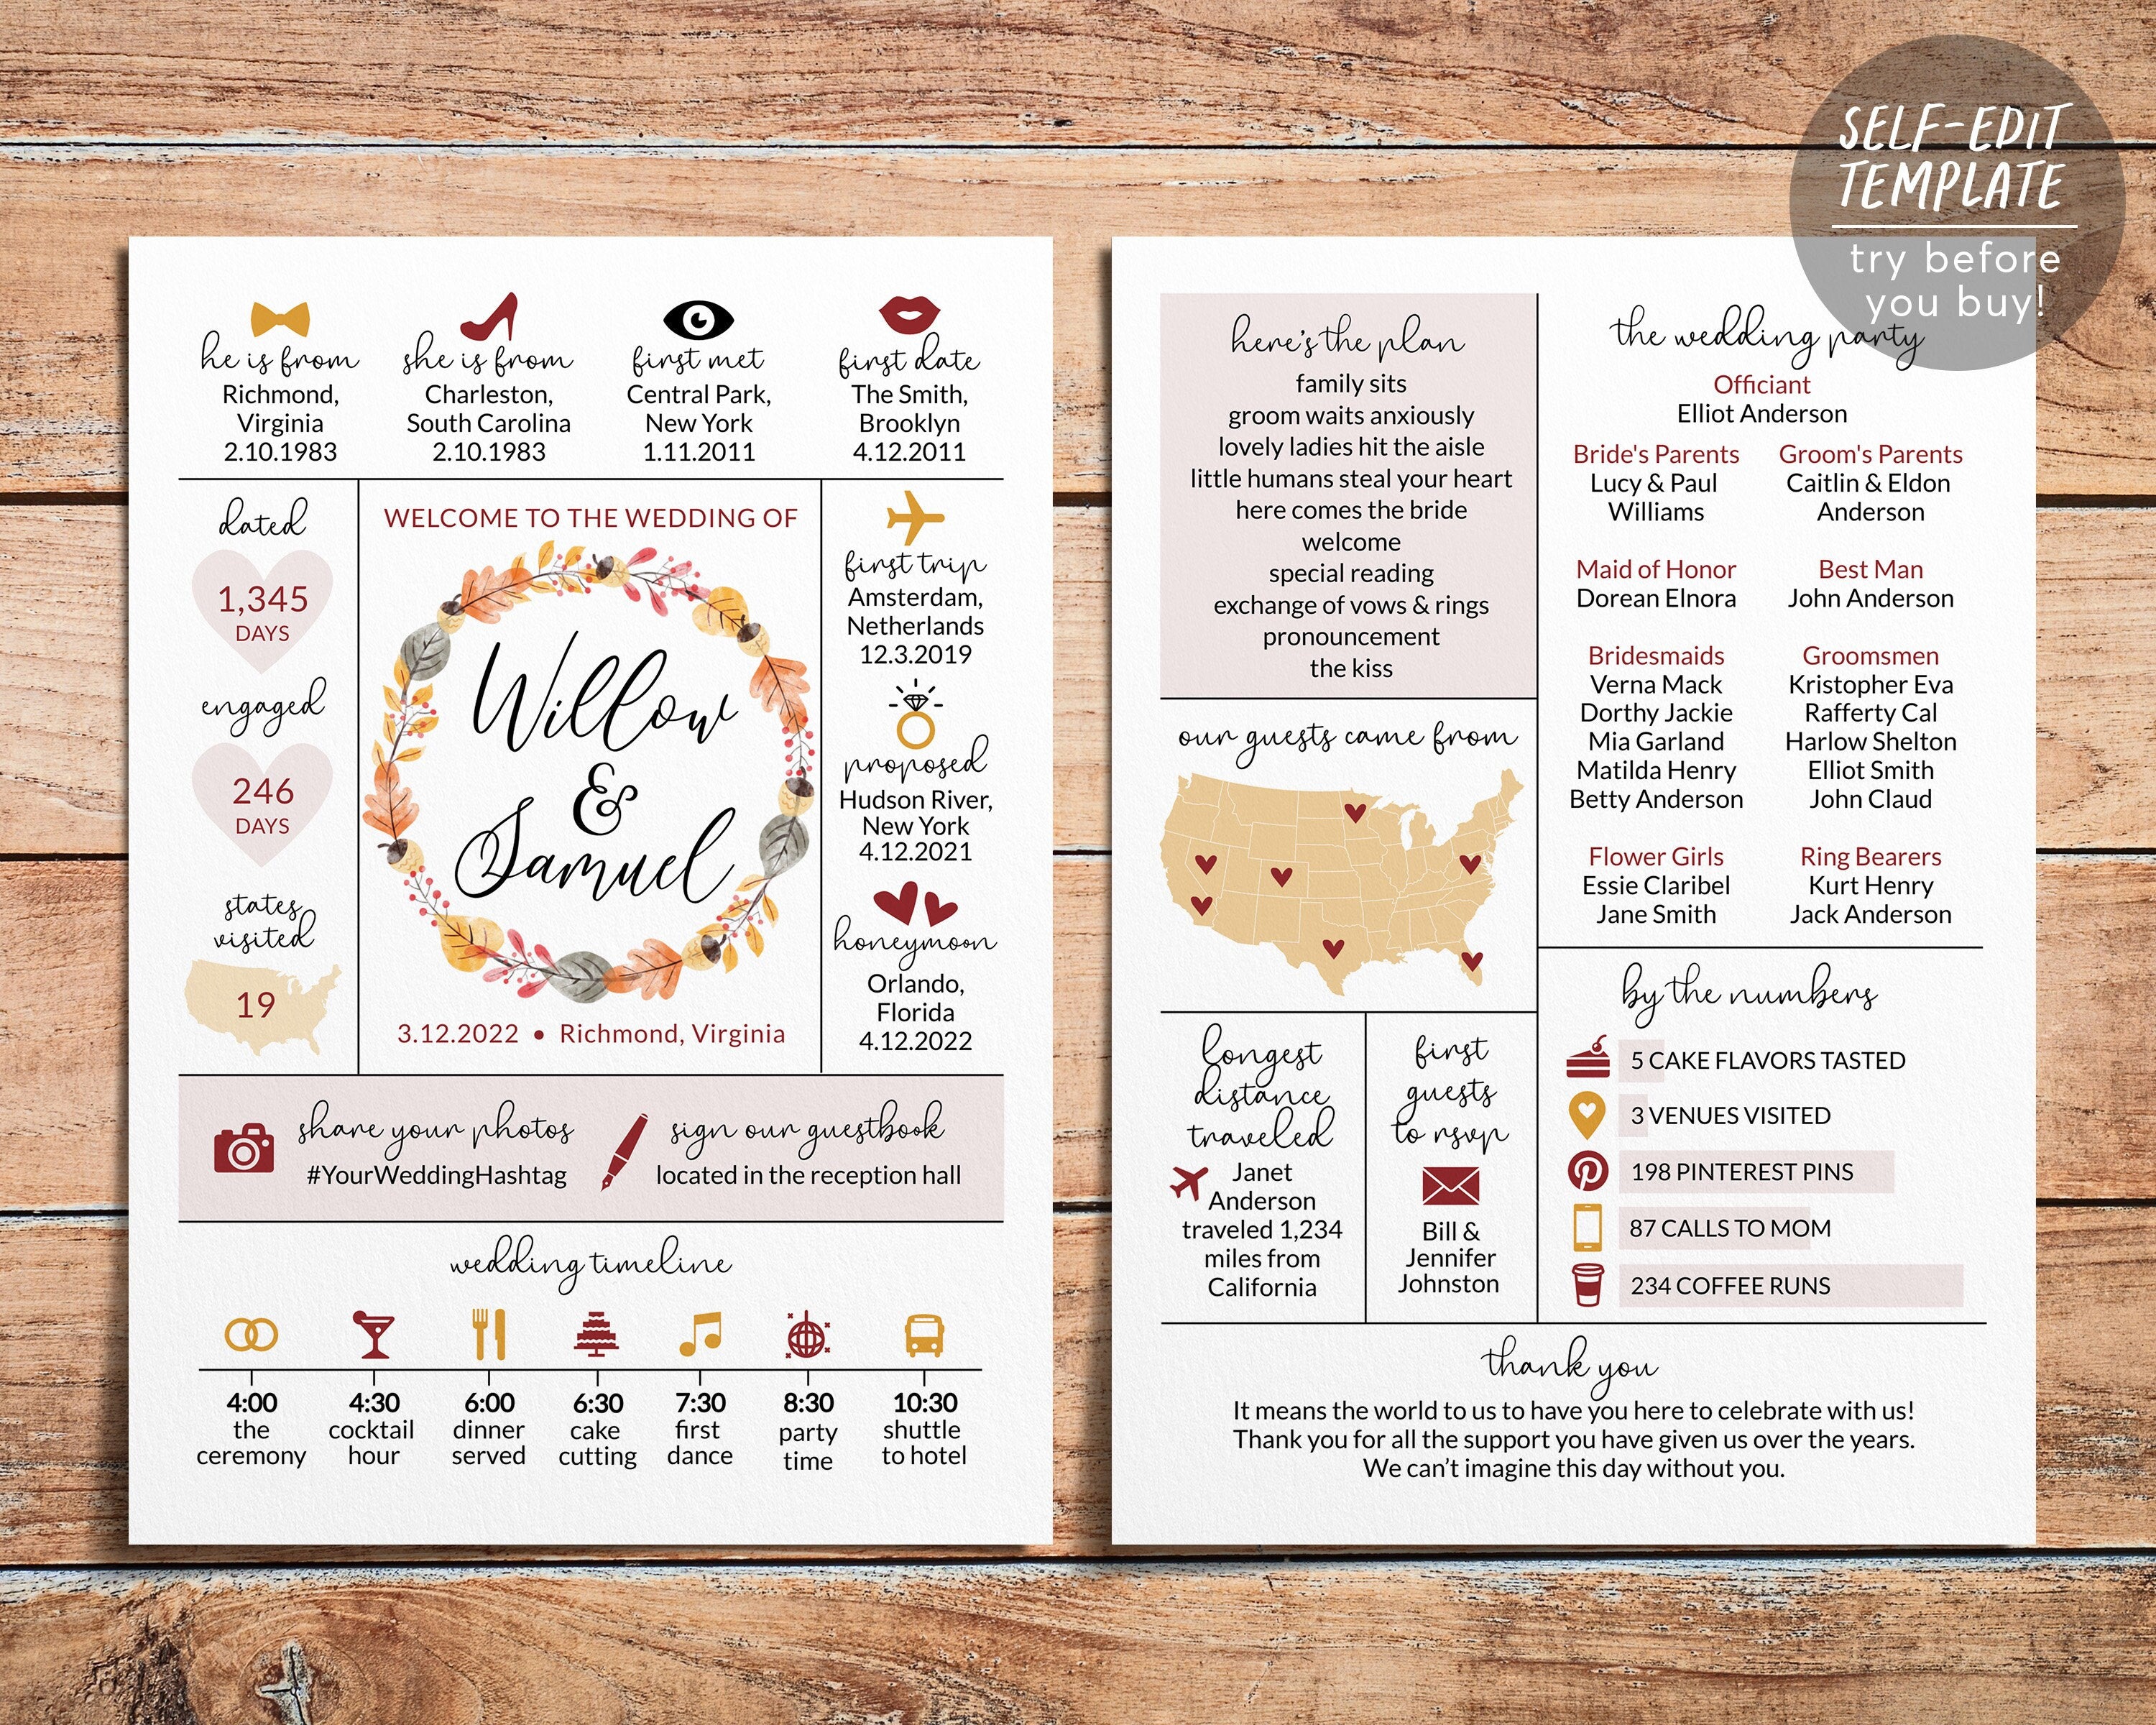 SELF-EDIT
TEMPLATE
try before
you buy!
he is from
Richmond,
Virginia
2.10.1983
she is from
Charleston,
South Carolina
2.10.1983
first met
Central Park,
New York
1.11.2011
first date
The Smith,
Brooklyn
4.12.2011
dated
1,345
DAYS
engaged
246
DAYS
states
visited
19
WELCOME TO THE WEDDING OF
Willow
&
Samuel
3.12.2022 • Richmond, Virginia
first trip
Amsterdam,
Netherlands
12.3.2019
proposed
Hudson River,
New York
4.12.2021
honeymoon
Orlando,
Florida
4.12.2022
share your photos
#YourWeddingHashtag
sign our guestbook
located in the reception hall
wedding timeline
4:00
the
ceremony
4:30
cocktail
hour
6:00
dinner
served
6:30
cake
cutting
7:30
first
dance
8:30
party
time
10:30
shuttle
to hotel
here's the plan
family sits
groom waits anxiously
lovely ladies hit the aisle
little humans steal your heart
here comes the bride
welcome
special reading
exchange of vows & rings
pronouncement
the kiss
our guests came from
longest
distance
traveled
Janet
Anderson
traveled 1,234
miles from
California
first
guests
to rsvp
Bill &
Jennifer
Johnston
the wedding party
Officiant
Elliot Anderson
Bride's Parents
Lucy & Paul
Williams
Groom's Parents
Caitlin & Eldon
Anderson
Maid of Honor
Dorean Elnora
Best Man
John Anderson
Bridesmaids
Verna Mack
Dorthy Jackie
Mia Garland
Matilda Henry
Betty Anderson
Groomsmen
Kristopher Eva
Rafferty Cal
Harlow Shelton
Elliot Smith
John Claud
Flower Girls
Essie Claribel
Jane Smith
Ring Bearers
Kurt Henry
Jack Anderson
by the numbers
5 CAKE FLAVORS TASTED
3 VENUES VISITED
198 PINTEREST PINS
87 CALLS TO MOM
234 COFFEE RUNS
thank you
It means the world to us to have you here to celebrate with us!
Thank you for all the support you have given us over the years.
We can't imagine this day without you.